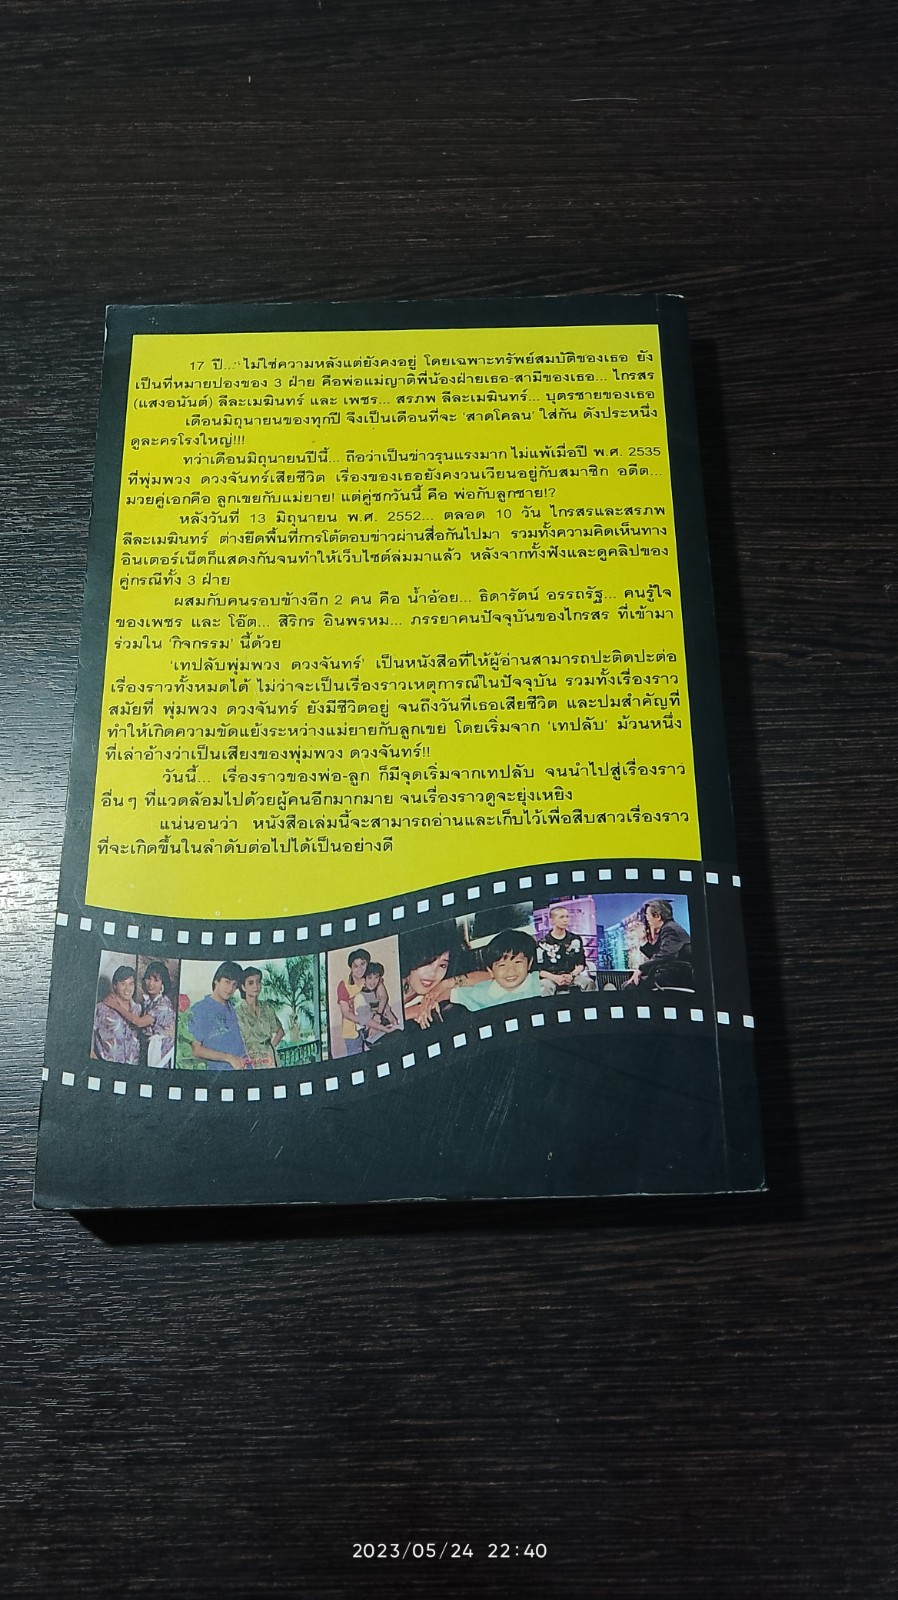 17 ปี... ไม่ใช่ความหลังแต่ยังคงอยู่ โดยเฉพาะทรัพย์สมบัติของเธอ ยัง
เป็นที่หมายปองของ 3 ฝ่าย คือพ่อแม่ญาติพี่น้องฝ่ายเธอ-สามีของเธอ... ไกรสร
(แสงอนันต์) ลีละเมฆินทร์ และ เพชร... สรภพ ลีละเมฆินทร์... บุตรชายของเธอ
เดือนมิถุนายนของทุกปี จึงเป็นเดือนที่จะ 'สาดโคลน' ใส่กัน ดังประหนึ่ง
ดูละครโรงใหญ่!!!
ทว่าเดือนมิถุนายนปีนี้... ถือว่าเป็นข่าวรุนแรงมาก ไม่แพ้เมื่อปี พ.ศ. 2535
ที่พุ่มพวง ดวงจันทร์เสียชีวิต เรื่องของเธอยังคงวนเวียนอยู่กับสมาชิก อดีต...
มวยคู่เอกคือ ลูกเขยกับแม่ยาย! แต่คู่ชกวันนี้ คือ พ่อกับลูกชาย!?
หลังวันที่ 13 มิถุนายน พ.ศ. 2552... ตลอด 10 วัน ไกรสรและสรภพ
ลีละเมฆินทร์ ต่างยึดพื้นที่การโต้ตอบข่าวผ่านสื่อกันไปมา รวมทั้งความคิดเห็นทาง
อินเตอร์เน็ตก็แสดงกันจนทำให้เว็บไซต์ล่มมาแล้ว หลังจากทั้งฟังและดูคลิปของ
คู่กรณีทั้ง 3 ฝ่าย
ผสมกับคนรอบข้างอีก 2 คน คือ น้ำอ้อย... ธิดารัตน์ อรรถรัฐ... คนรู้ใจ
ของเพชร และ โอ๊ต... สิริกร อินพรหม... ภรรยาคนปัจจุบันของไกรสร ที่เข้ามา
ร่วมใน 'กิจกรรม' นี้ด้วย
'เทปลับพุ่มพวง ดวงจันทร์' เป็นหนังสือที่ให้ผู้อ่านสามารถปะติดปะต่อ
เรื่องราวทั้งหมดได้ ไม่ว่าจะเป็นเรื่องราวเหตุการณ์ในปัจจุบัน รวมทั้งเรื่องราว
สมัยที่ พุ่มพวง ดวงจันทร์ ยังมีชีวิตอยู่ จนถึงวันที่เธอเสียชีวิต และปมสำคัญที่
ทำให้เกิดความขัดแย้งระหว่างแม่ยายกับลูกเขย โดยเริ่มจาก 'เทปลับ' ม้วนหนึ่ง
ที่เล่าอ้างว่าเป็นเสียงของพุ่มพวง ดวงจันทร์!!
วันนี้... เรื่องราวของพ่อ-ลูก ก็มีจุดเริ่มจากเทปลับ จนนำไปสู่เรื่องราว
อื่น ๆ ที่แวดล้อมไปด้วยผู้คนอีกมากมาย จนเรื่องราวดูจะยุ่งเหยิง
แน่นอนว่า หนังสือเล่มนี้จะสามารถอ่านและเก็บไว้เพื่อสืบสาวเรื่องราว
ที่จะเกิดขึ้นในลำดับต่อไปได้เป็นอย่างดี
2023/05/24 22:40